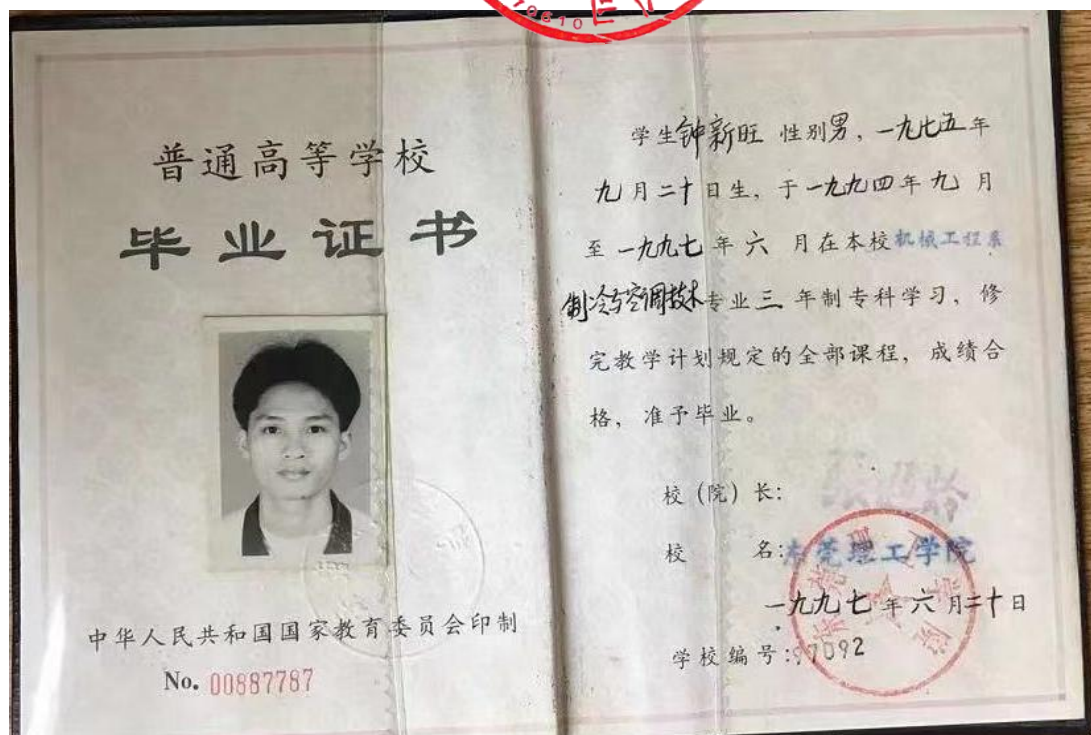 普通高等学校
毕业证书
中华人民共和国国家教育委员会印制
No. 00887787
学生钟新旺 性别男，一九七五年
九月二十日生，于一九九四年九月
至一九九七年六月在本校机械工程系
制冷与空调技术专业三年制专科学习，修
完教学计划规定的全部课程，成绩合
格，准予毕业。
校（院）长：
校 名：东莞理工学院
一九九七年六月二十日
学校编号：97092